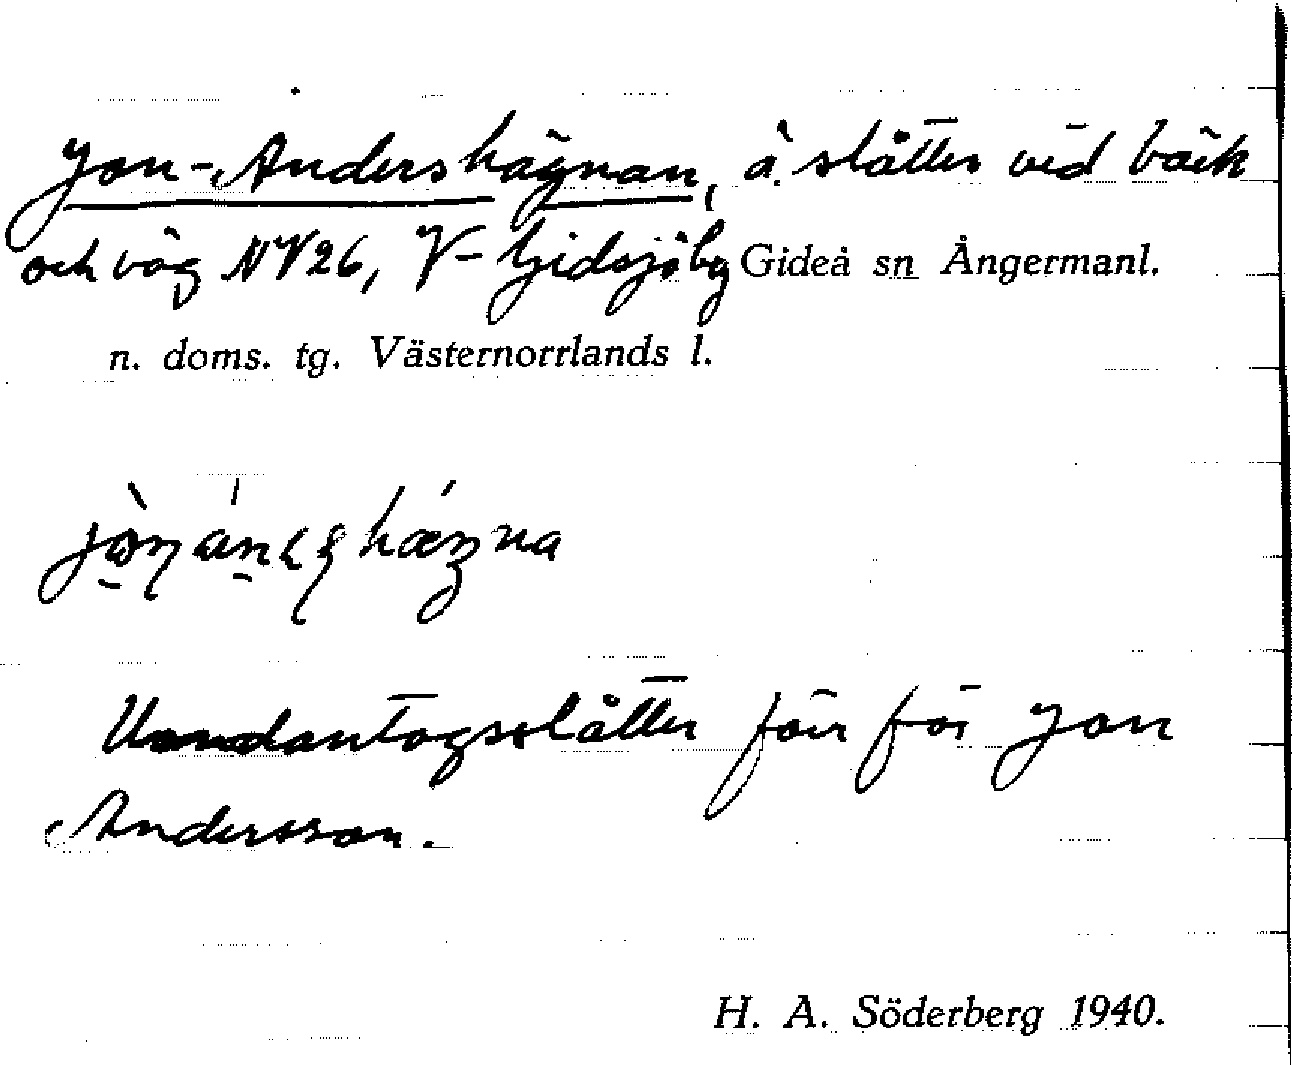 Jon-Andershägnan, å. slåtter vid bäck
och väg NV 26, V-Gidsjöbg Gideå sn Ångermanl.
n. doms. tg. Västernorrlands l.
Undantagsslåtter förr för Jon
Andersson.
H. A. Söderberg 1940.